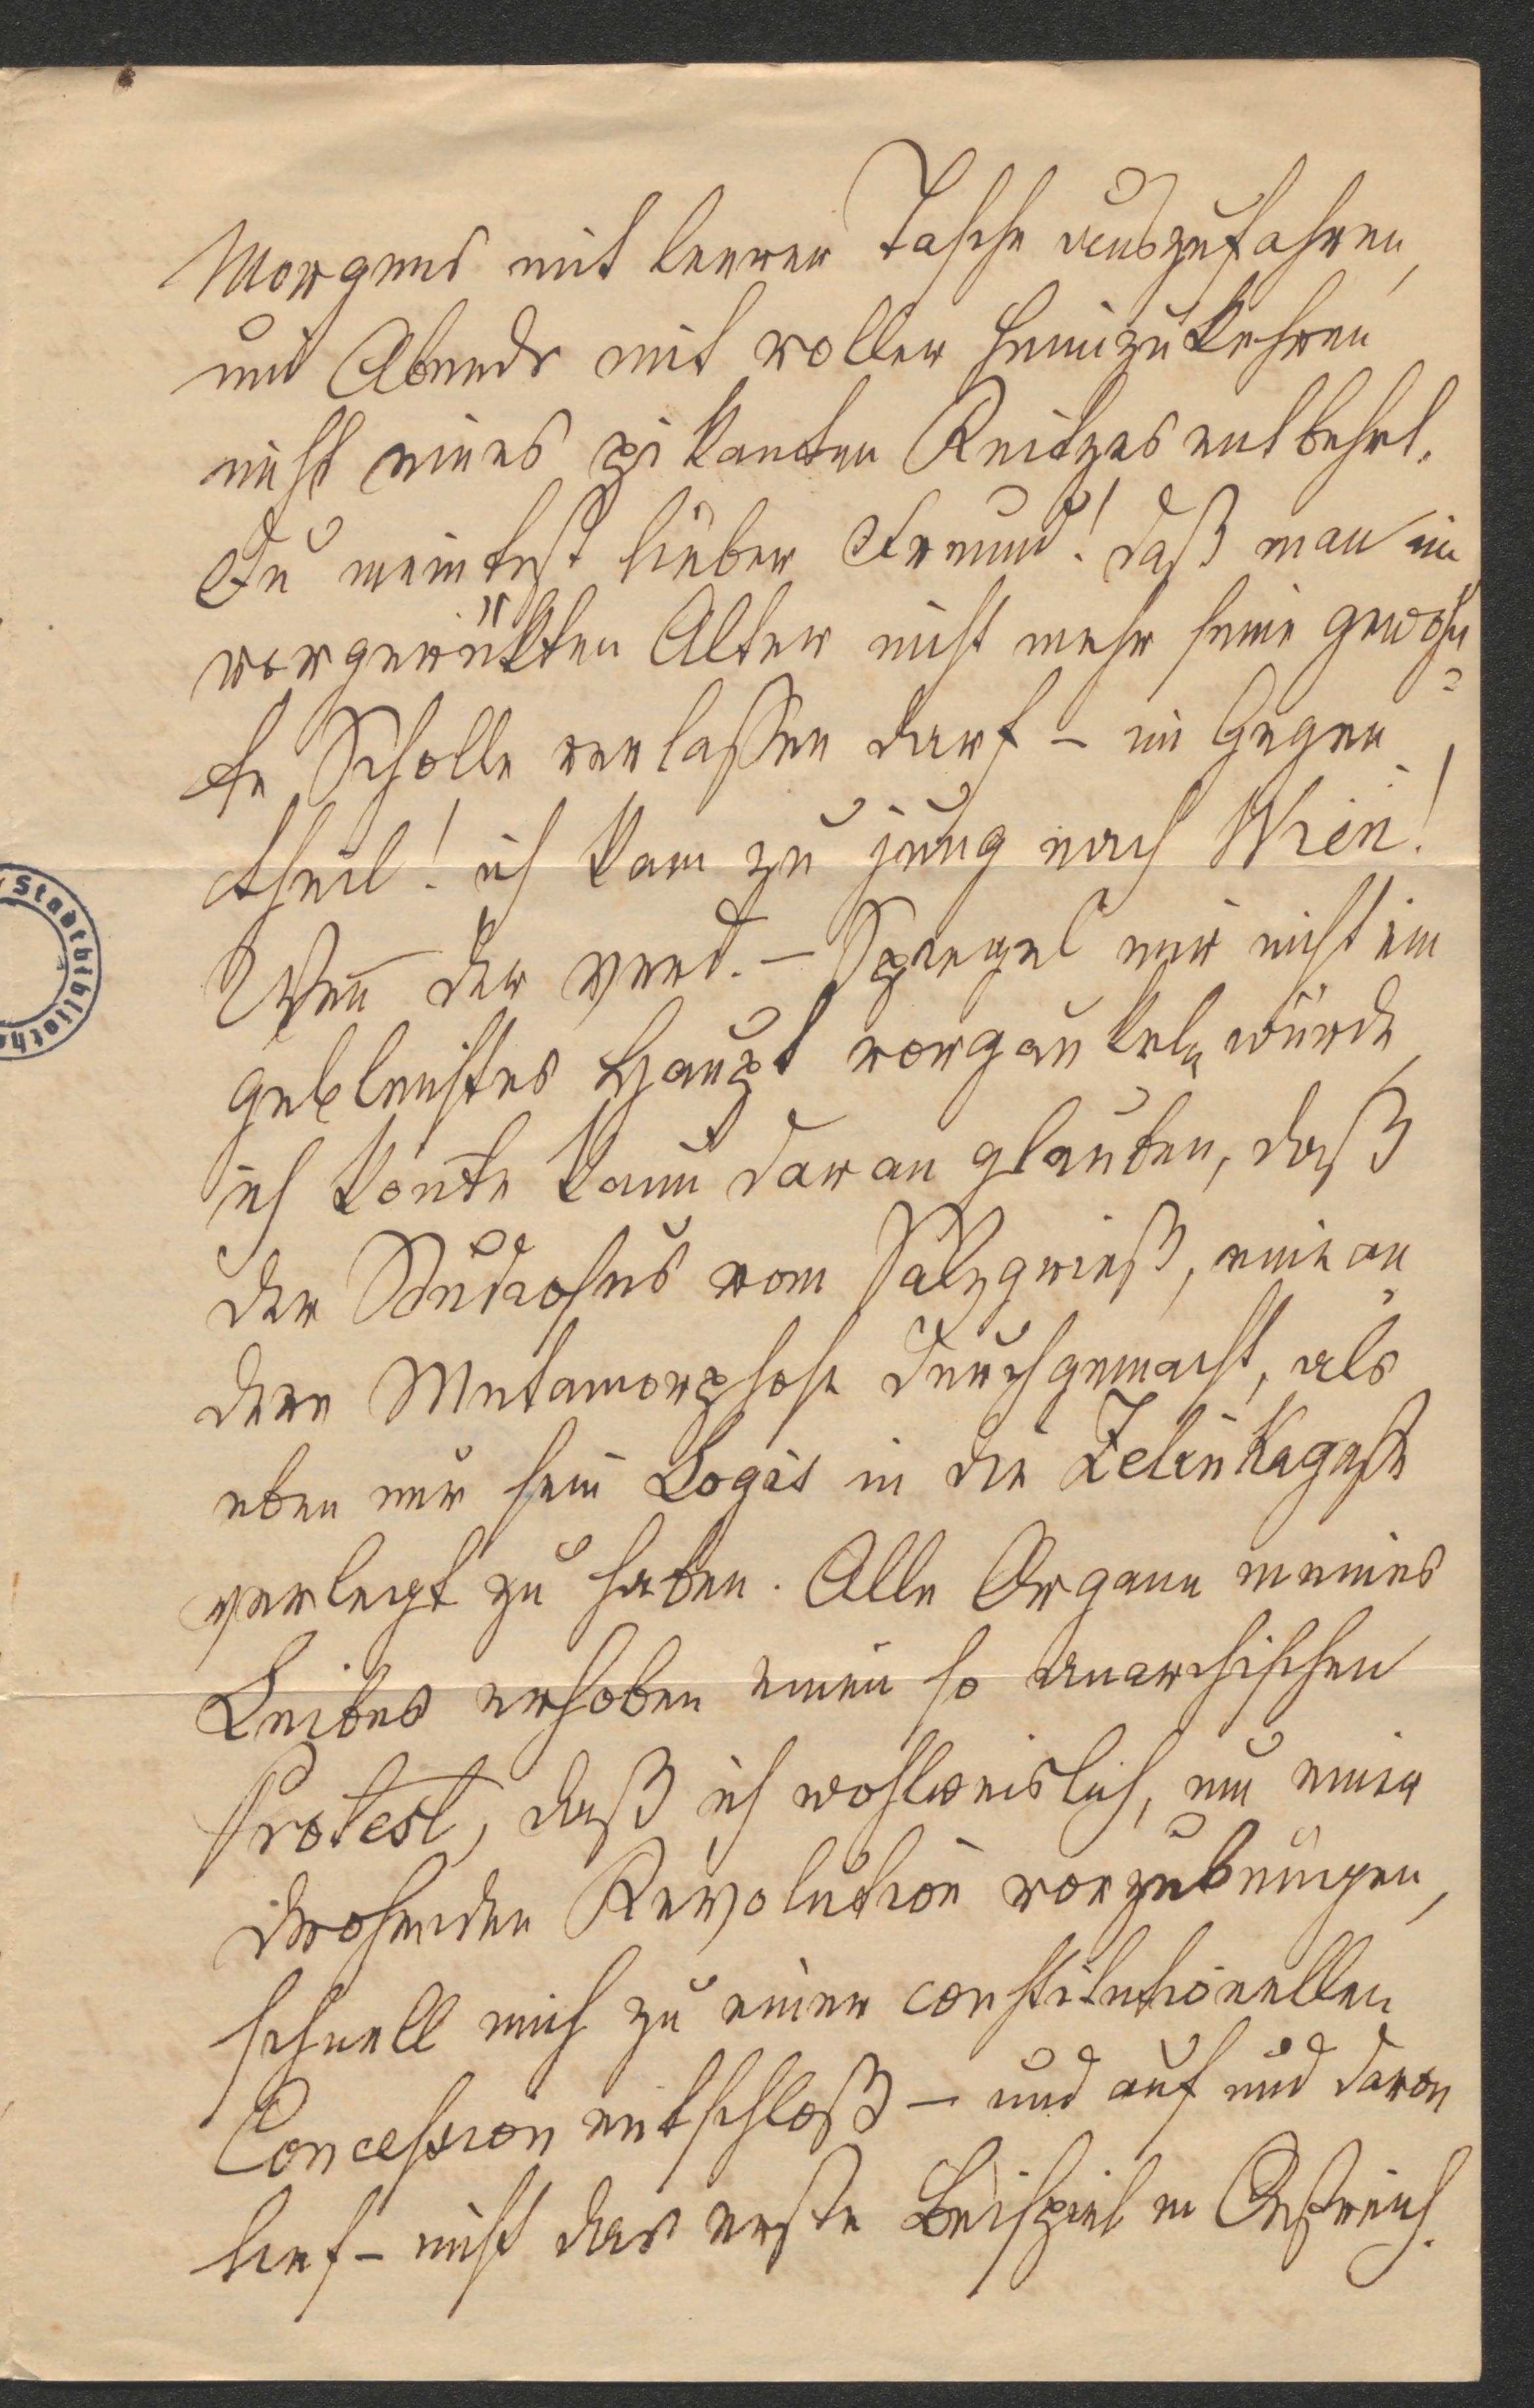 Morgens mit leerer Tasche auszufahren,
und Abends mit voller heimzukehren
nicht eines pikanten Reitzes entbehrt.
Du meintest lieber Freund! daß man im
vorgerükten Alter nicht mehr seine gewohn
te Scholle verlassen darf – im Gegen
theil! ich kam zu jung nach Wien!
Wen̄ der verd. – Spiegel mir nicht ein
gebleichtes Haupt vorgaukeln würde,
ich kön̄te kaum daran glauben, daß
der Studiosus vom Salzgrieß, eine an
dere Metamorphose durchgemacht, als
eben nur sein Logis in die Zelinkagasse
verlegt zu haben. Alle Organe meines
Leibes erhoben einen so anarchischen
Protest, daß ich wohlweislich, um einer
drohenden Revolution vorzubeugen,
schnell mich zu einer constitutionellen
Concession entschloß – und auf und davon
lief – nicht das erste Beispiel in Oestreich.
Stadtbibliothe